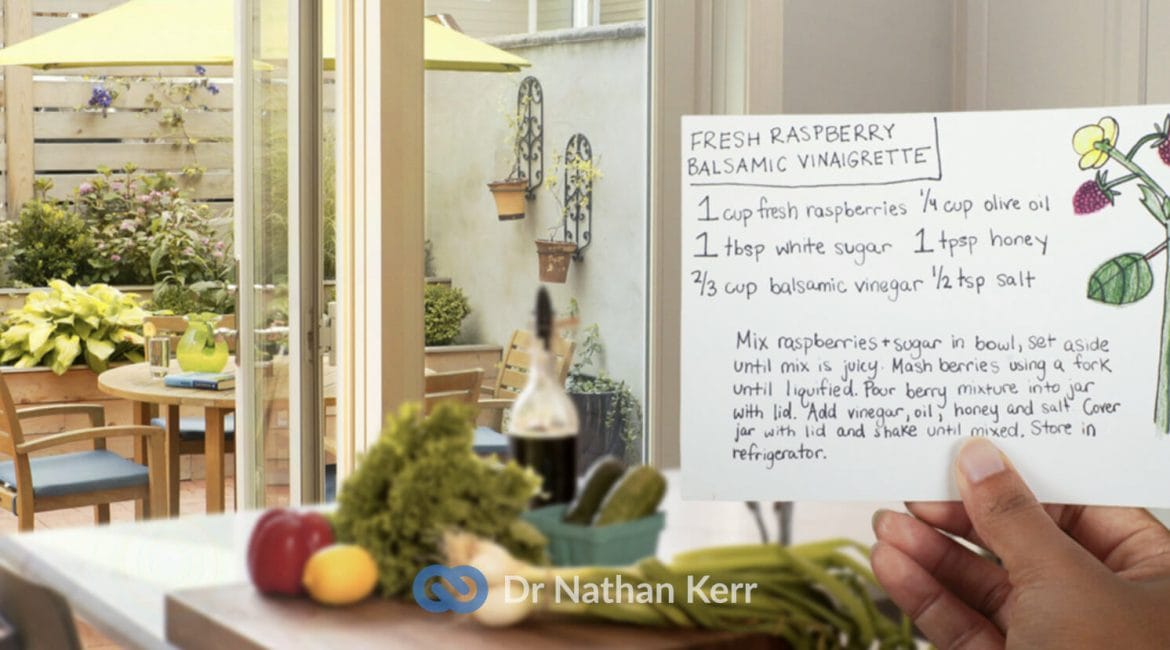 FRESH RASPBERRY
BALSAMIC VINAIGRETTE
1 cup fresh raspberries 1/4 cup olive oil
1 tbsp white sugar 1 tpsp honey
2/3 cup balsamic vinegar 1/2 tsp salt
Mix raspberries + sugar in bowl, set aside
until mix is juicy. Mash berries using a fork
until liquified. Pour berry mixture into jar
with lid. Add vinegar, oil, honey and salt. Cover
jar with lid and shake until mixed. Store in
refrigerator.
Dr Nathan Kerr